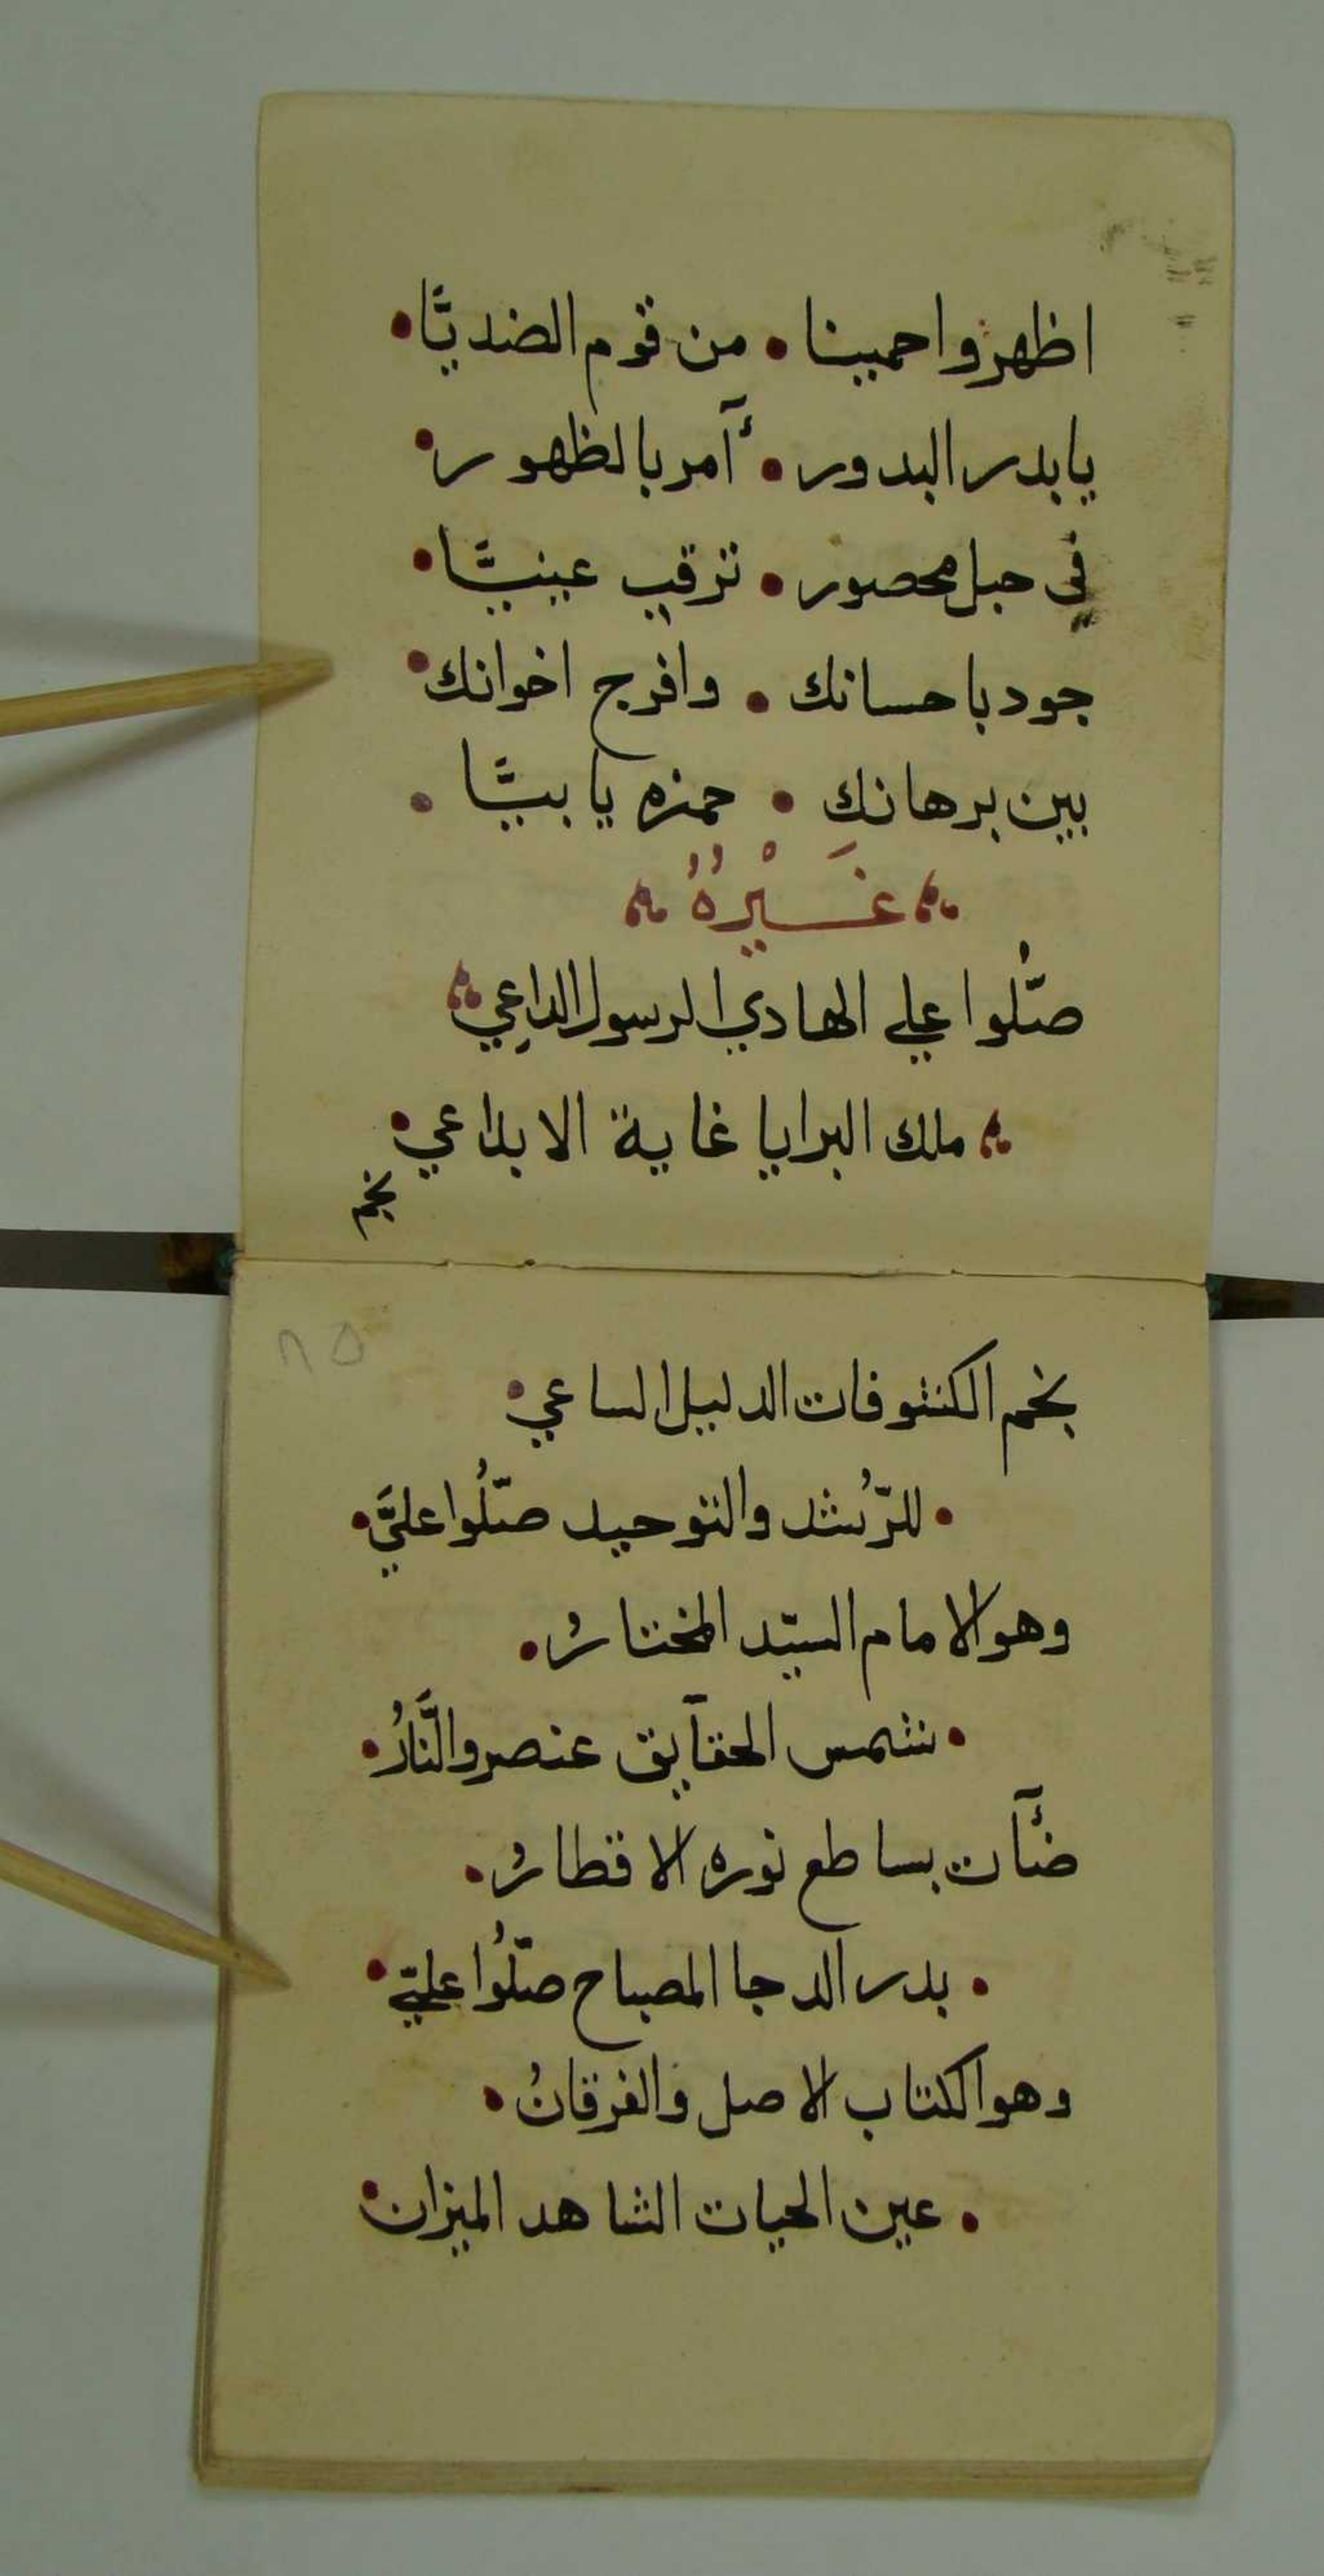 اظهروا حمينا • من قوم الضديًّا •
يا بدر البدور • أآمر بالظهور •
في جبل محصور • ترقب عينيًّا •
جود باحسانك • وافرج اخوانك •
بين برهانك • حمزه يا بيًّا •
غَيْرُهُ
صلُّوا علي الهادي الرسول الداعِي
ملك البرايا غاية الابداعي •
نجم
نجم الكشوفات الدليل الساعي •
• للرُّشد والتوحيد صلُّوا عليَّ •
وهو الامام السيّد المختارُ •
• شمس الحقآيق عنصر والنَّارُ •
ضآٔت بساطع نوره الاقطارُ •
• بدر الدجا المصباح صلُّوا عليّ •
وهو الكتاب الاصل والفرقانُ •
• عين الحيات الشاهد الميزان •
٨٥